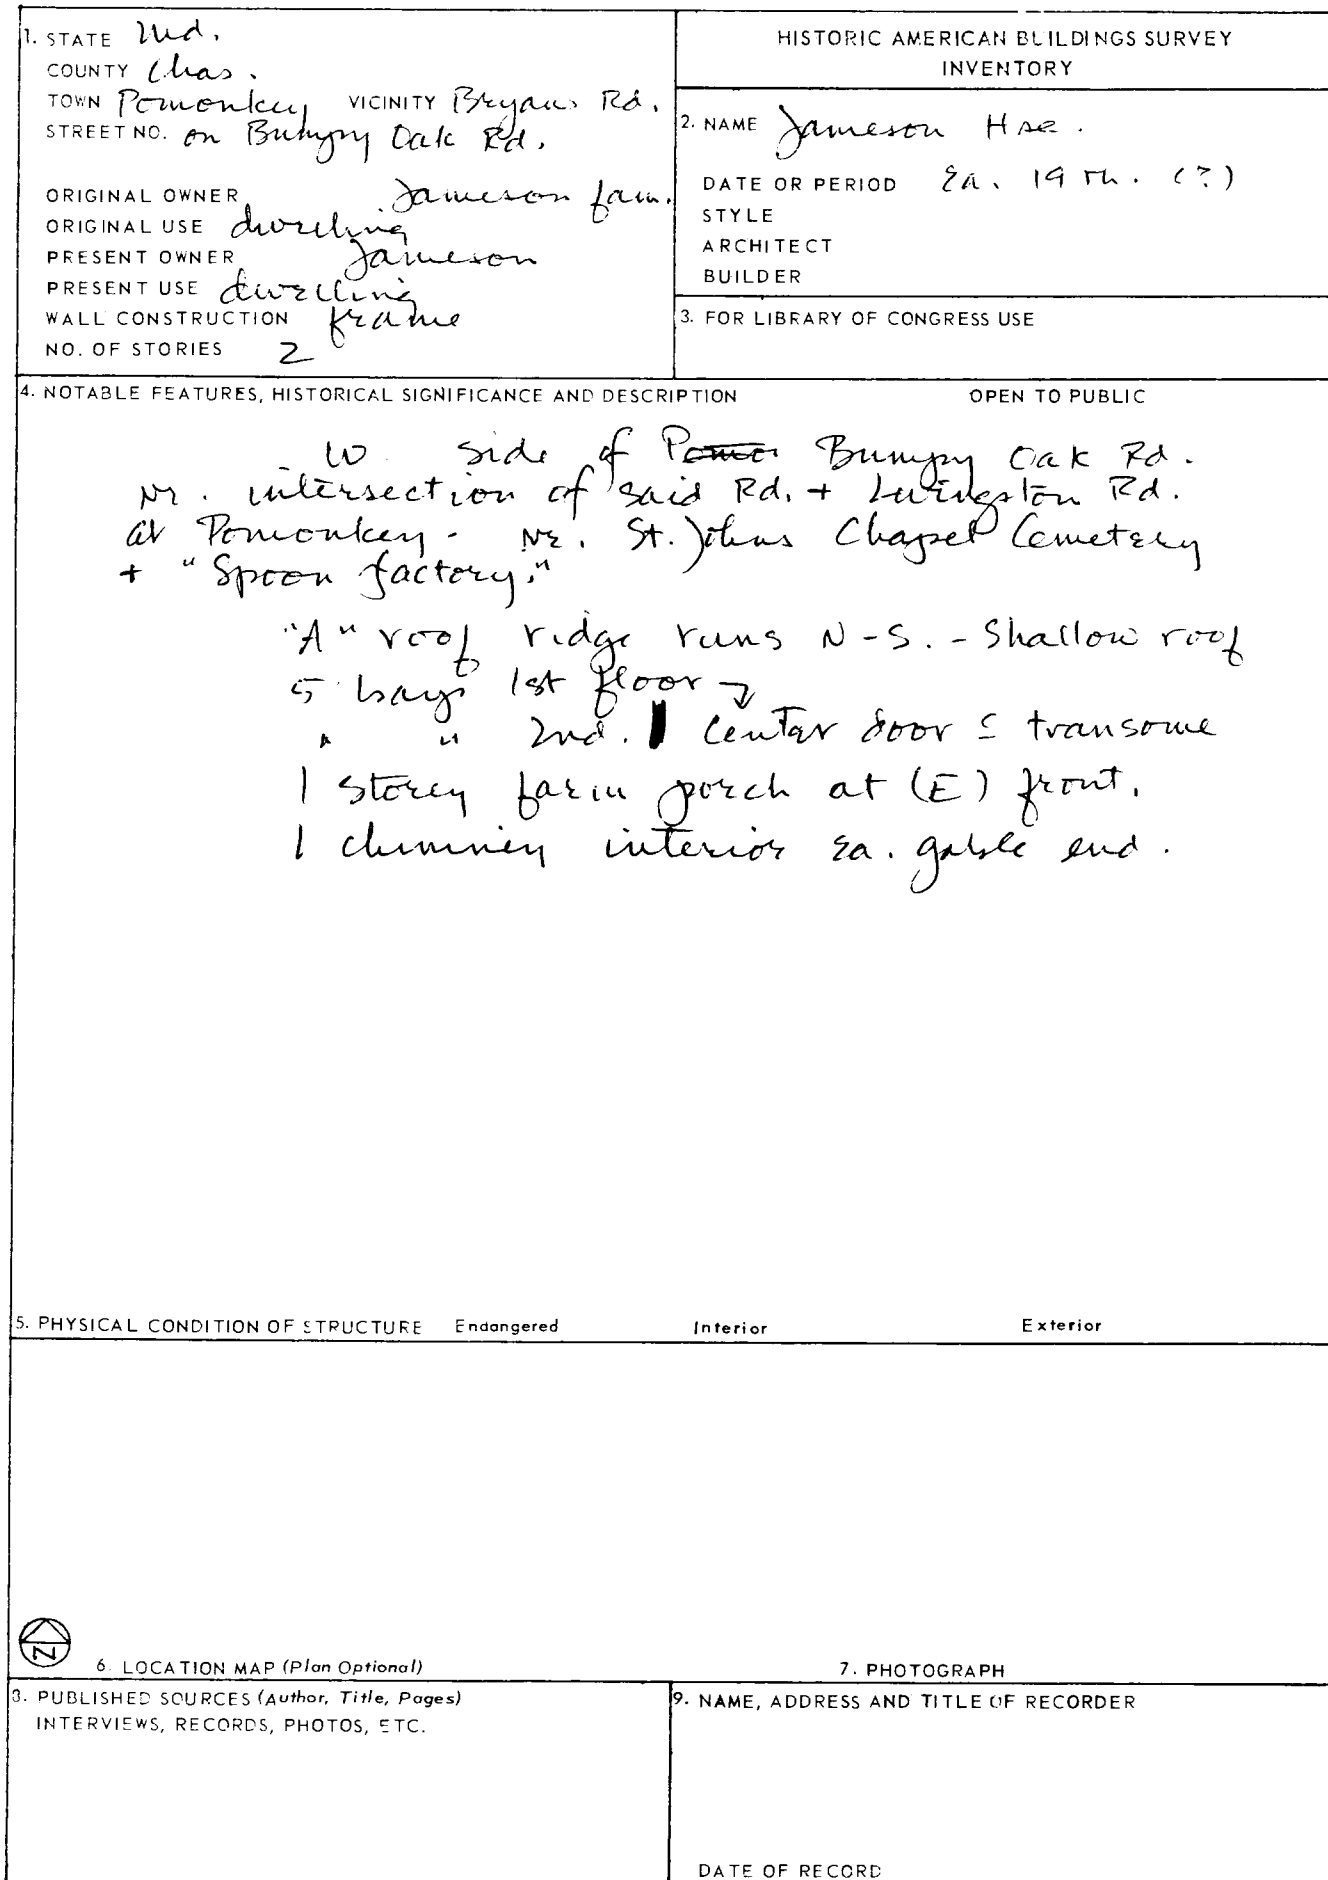 1. STATE Md.
COUNTY Chas.
TOWN Pomonkey VICINITY Bryans Rd.
STREET NO. on Bumpy Oak Rd.
ORIGINAL OWNER Jameson fam.
ORIGINAL USE dwelling
PRESENT OWNER Jameson
PRESENT USE dwelling
WALL CONSTRUCTION frame
NO. OF STORIES 2
HISTORIC AMERICAN BUILDINGS SURVEY
INVENTORY
2. NAME Jameson Hse.
DATE OR PERIOD Ea. 19th. (?)
STYLE
ARCHITECT
BUILDER
3. FOR LIBRARY OF CONGRESS USE
4. NOTABLE FEATURES, HISTORICAL SIGNIFICANCE AND DESCRIPTION OPEN TO PUBLIC
W side of Bumpy Oak Rd.
Nr. intersection of said Rd. + Livingston Rd.
at Pomonkey - Nr. St. Johns Chapel Cemetery
+ "Spoon factory."
"A" roof ridge runs N-S. - Shallow roof
5 bays 1st floor
" " 2nd. Center door c transome
1 storey farm porch at (E) front.
1 chimney interior ea. gable end.
5. PHYSICAL CONDITION OF STRUCTURE Endangered Interior Exterior
N
6. LOCATION MAP (Plan Optional)
7. PHOTOGRAPH
8. PUBLISHED SOURCES (Author, Title, Pages)
INTERVIEWS, RECORDS, PHOTOS, ETC.
9. NAME, ADDRESS AND TITLE OF RECORDER
DATE OF RECORD